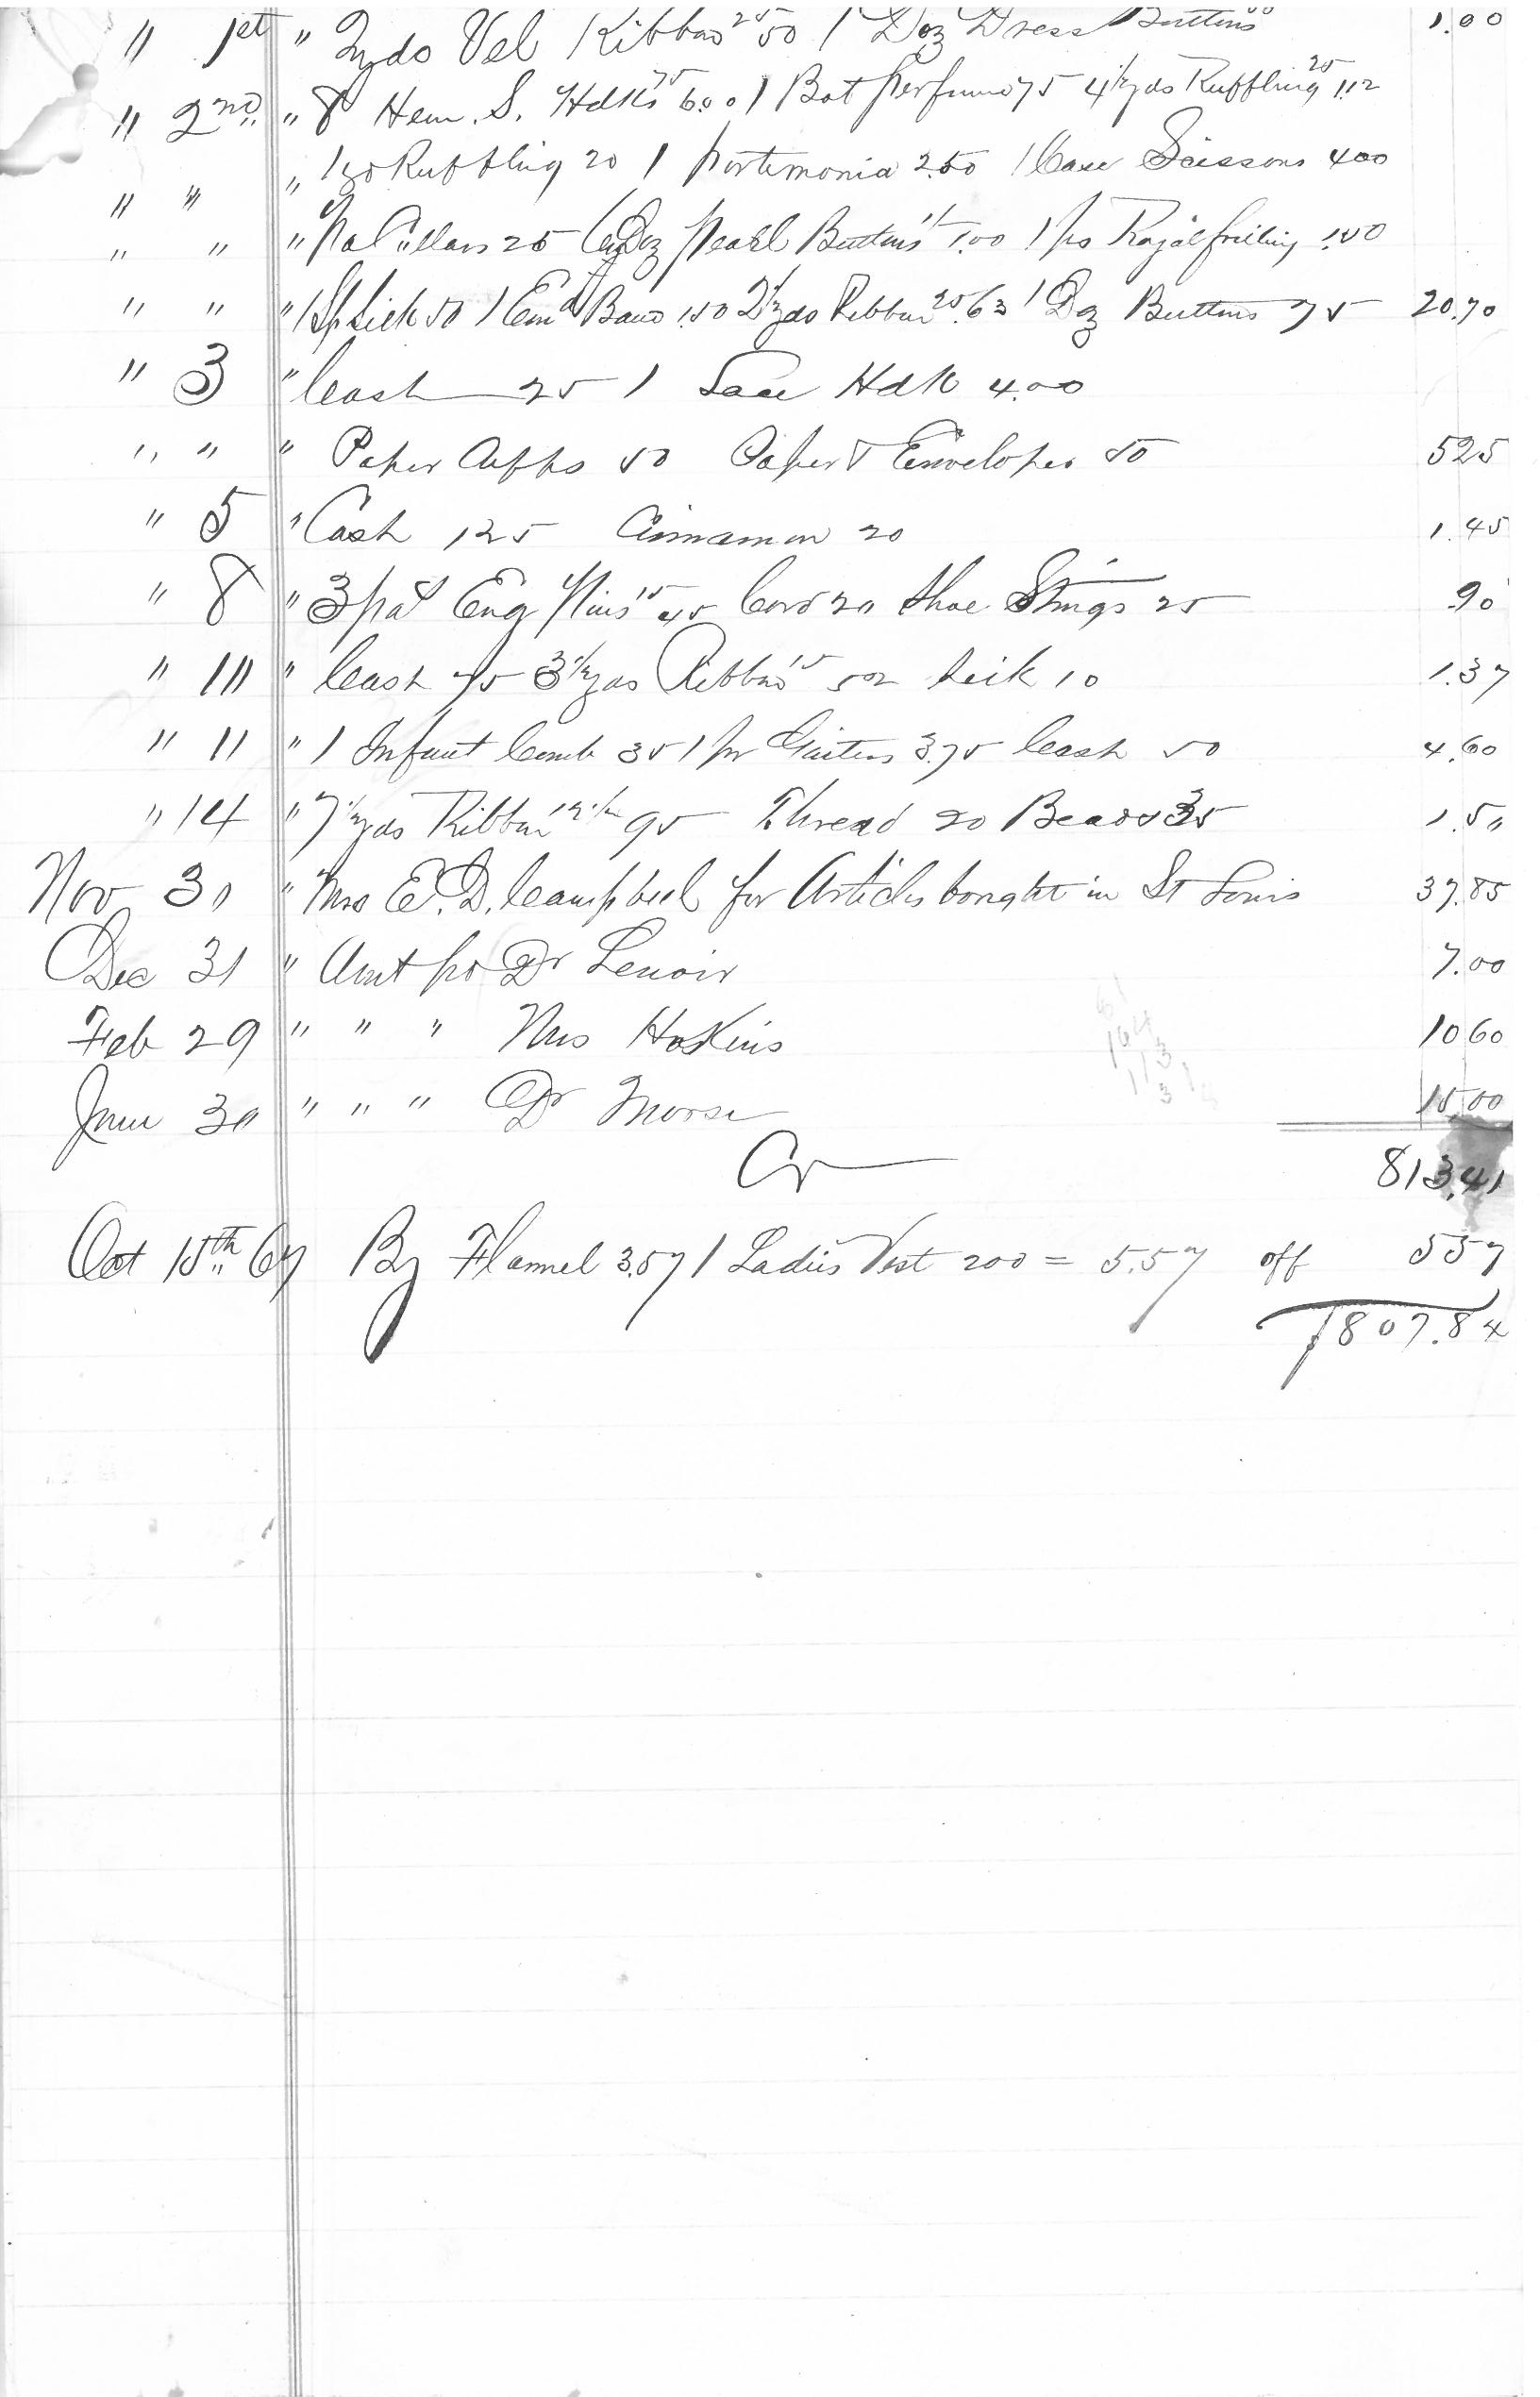 " 1st " 2 yds Vel Ribbon 25 50 1 Doz Dress Buttons 1.00
" 2nd " 8 Hem. S. Hdkfs 75 6.00 1 Bot perfume 75 4 1/2 yds Ruffling 25 1.12
" " " 1 yd Ruffling 20 1 portemonia 2.50 1 Case Scissons 400
" " " Collars 25 Doz pearl Buttons 1.00 1 ps frilling 1.50
" " " 1 Sp Silk 50 1 Emd Band 1.50 2 1/2 yds Ribbon 25 .63 1 Doz Buttons 75 20.70
" 3 " Cash 25 1 Lace Hdk 4.00
" " " Paper Cuffs 50 Paper & Envelopes 50 525
" 5 " Cash 125 Cinnamon 20 1.45
" 8 " 3 pa Eng Pins 15 45 Cord 20 Shoe Strings 25 90
" 10 " Cash 75 3 1/2 yds Ribbon 15 52 Silk 10 1.37
" 11 " 1 Infant Comb 35 1 pr Gaiters 3.75 Cash 50 4.60
" 14 " 7 1/2 yds Ribbon 12 1/2 95 Thread 20 Beads 35 1.50
Nov 30 " Mrs E. D. Campbell for Articles bought in St Louis 37.85
Dec 31 " Amt pd Dr Lenoir 7.00
Feb 29 " " " Mrs Hoskins 1060
June 30 " " " Dr Morse 15.00
Cr 813.41
Oct 15th 67 By Flannel 3.57 1 Ladies Vest 200 = 5.57 off 557
$807.84